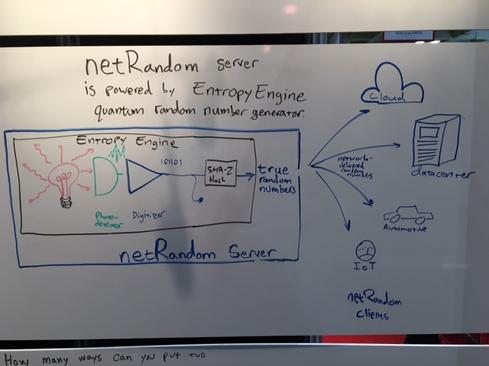 netRandom server
is powered by EntropyEngine
quantum random number generator
Entropy Engine
101101
SHA-2
Hash
Photo-
detector
Digitizer
true
random
numbers
netRandom Server
Cloud
network-
delivered
random
numbers
datacenter
Automotive
IoT
netRandom
clients
How many ways can you put two